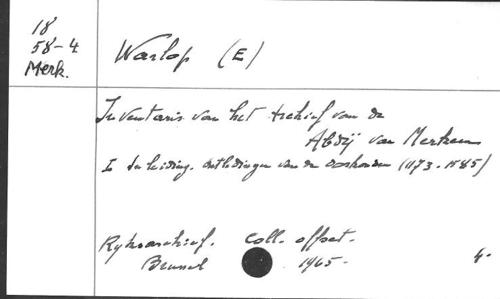 18
58-4
Merk.
Warlop (E)
Inventaris van het Archief van de
Abdij van Merkem
Inleiding. Ontledingen van de oorkonden (1173-1585)
Rijksarchief. Coll. offset.
Brussel 1965. 4.